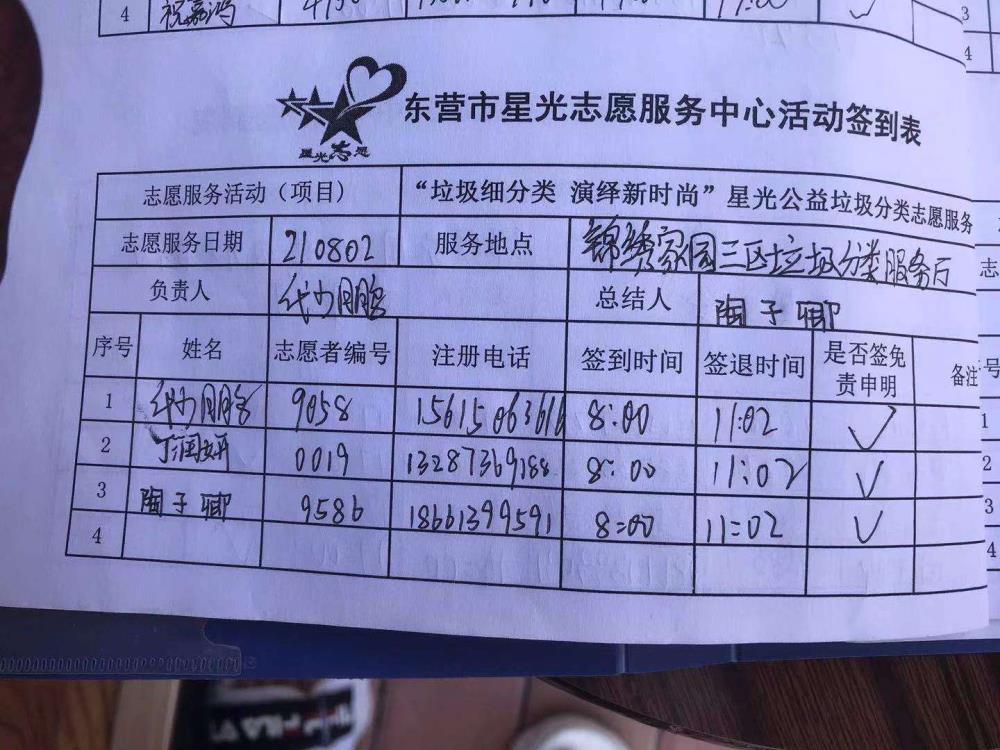 4 祝嘉鸿
星光志愿
东营市星光志愿服务中心活动签到表
志愿服务活动（项目） “垃圾细分类 演绎新时尚”星光公益垃圾分类志愿服务
志愿服务日期 210802 服务地点 锦绣家园三区垃圾分类服务厅
负责人 总结人 陶子卿
序号 姓名 志愿者编号 注册电话 签到时间 签退时间 是否签免责申明 备注
1 9058 15615063616 8:00 11:02 ✓
2 丁润妍 0019 13287369188 8:00 11:02 ✓
3 陶子卿 9586 18661399591 8:00 11:02 ✓
4